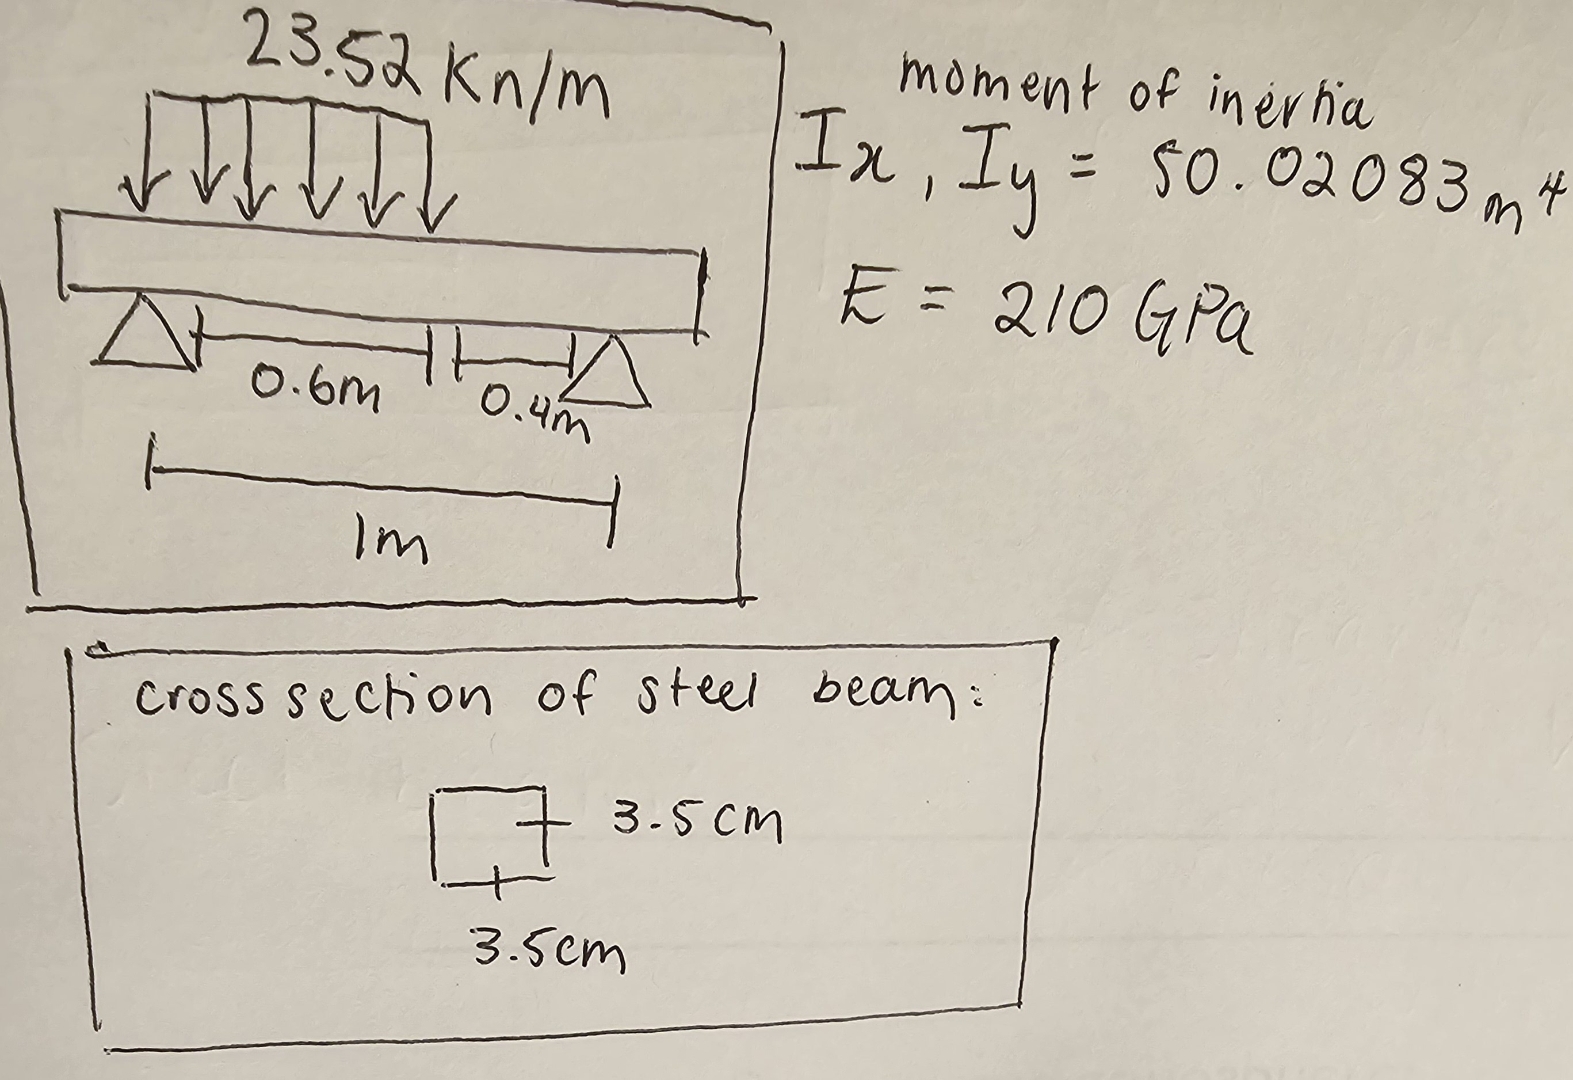 23.52 Kn/m
moment of inertia
Ix, Iy = 50.02083 m⁴
E = 210 GPa
0.6m
0.4m
1m
cross section of steel beam:
3.5cm
3.5cm